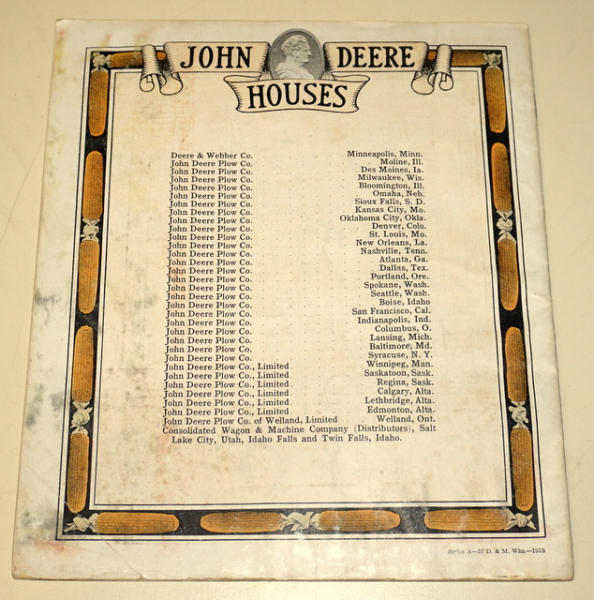 JOHN DEERE
HOUSES
Deere & Webber Co. Minneapolis, Minn.
John Deere Plow Co. Moline, Ill.
John Deere Plow Co. Des Moines, Ia.
John Deere Plow Co. Milwaukee, Wis.
John Deere Plow Co. Bloomington, Ill.
John Deere Plow Co. Omaha, Neb.
John Deere Plow Co. Sioux Falls, S. D.
John Deere Plow Co. Kansas City, Mo.
John Deere Plow Co. Oklahoma City, Okla.
John Deere Plow Co. Denver, Colo.
John Deere Plow Co. St. Louis, Mo.
John Deere Plow Co. New Orleans, La.
John Deere Plow Co. Nashville, Tenn.
John Deere Plow Co. Atlanta, Ga.
John Deere Plow Co. Dallas, Tex.
John Deere Plow Co. Portland, Ore.
John Deere Plow Co. Spokane, Wash.
John Deere Plow Co. Seattle, Wash.
John Deere Plow Co. Boise, Idaho
John Deere Plow Co. San Francisco, Cal.
John Deere Plow Co. Indianapolis, Ind.
John Deere Plow Co. Columbus, O.
John Deere Plow Co. Lansing, Mich.
John Deere Plow Co. Baltimore, Md.
John Deere Plow Co. Syracuse, N. Y.
John Deere Plow Co., Limited Winnipeg, Man.
John Deere Plow Co., Limited Saskatoon, Sask.
John Deere Plow Co., Limited Regina, Sask.
John Deere Plow Co., Limited Calgary, Alta.
John Deere Plow Co., Limited Lethbridge, Alta.
John Deere Plow Co., Limited Edmonton, Alta.
John Deere Plow Co. of Welland, Limited Welland, Ont.
Consolidated Wagon & Machine Company (Distributors), Salt
Lake City, Utah, Idaho Falls and Twin Falls, Idaho.
D. & M. Wks.